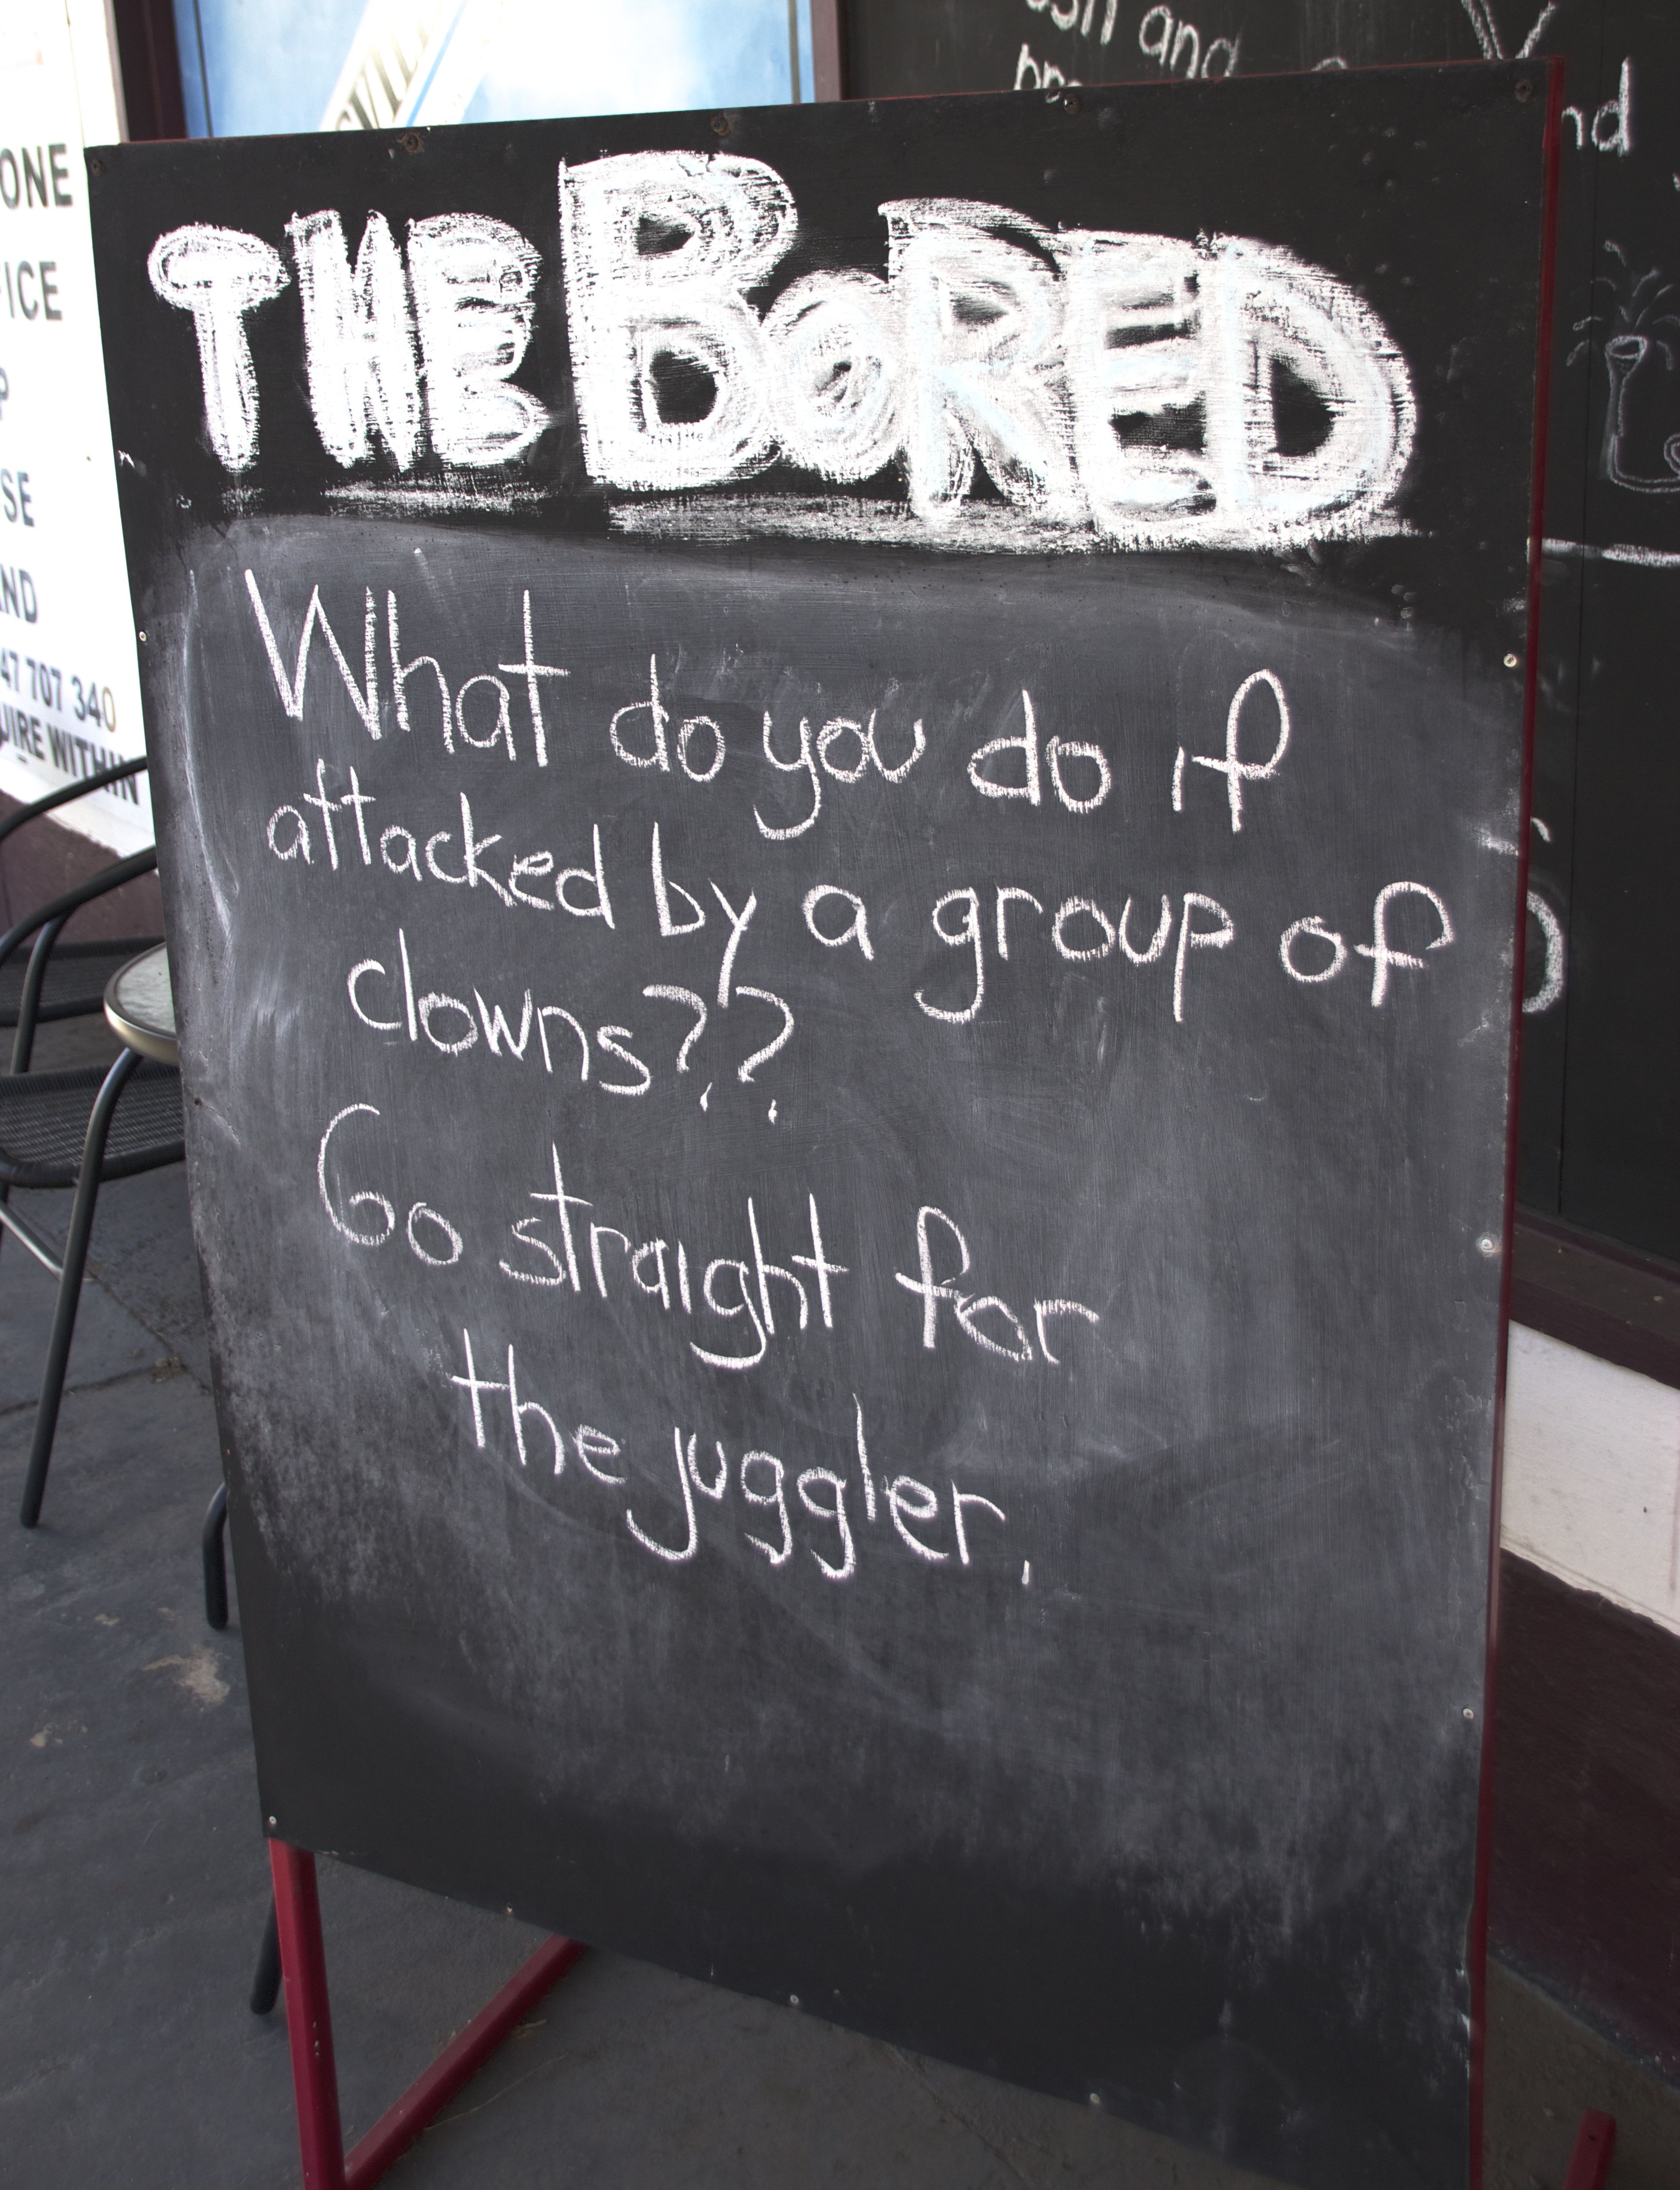 THE BORED
What do you do if
attacked by a group of
clowns??
Go straight for
the juggler.
ONE
ICE
P
SE
ND
47 707 340
UIRE WITHIN
and
nd